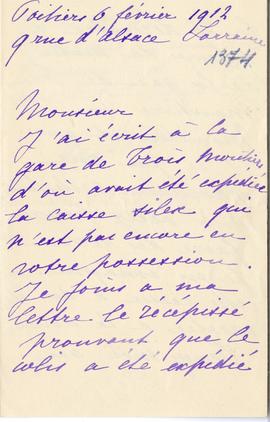 Poitiers 6 février 1912
9 rue d'alsace Lorraine
1374
Monsieur
J'ai écrit à la
gare de Trois Moutiers
d'où avait été expédiée
la caisse silex qui
n'est pas encore en
votre possession.
Je joins a ma
lettre le récépissé
prouvant que le
colis a été expédié